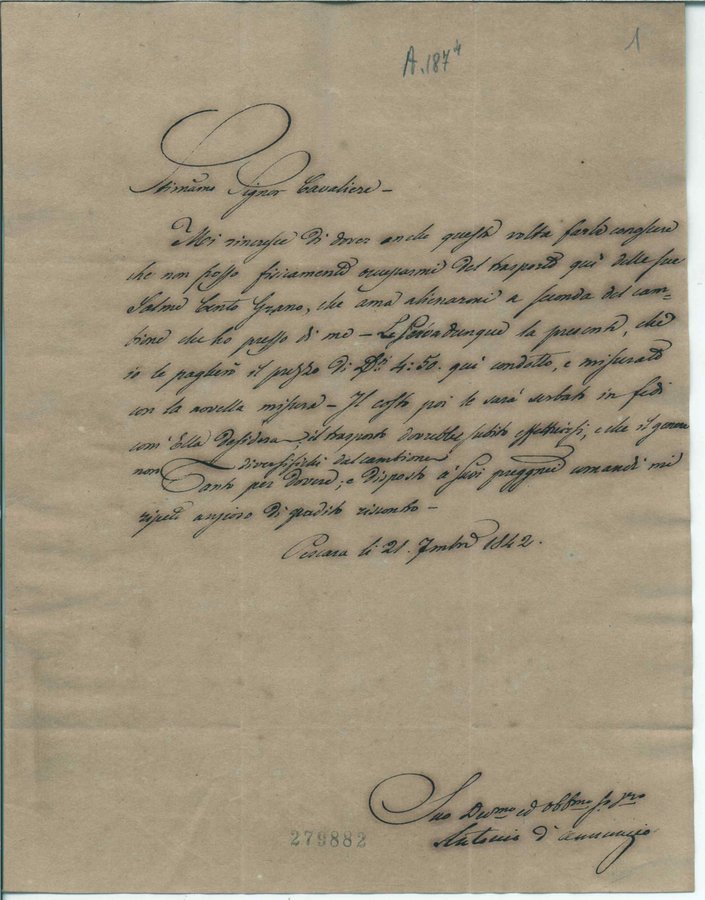 A. 187 4
1
Stimamo Signor Cavaliere –
Mi rincresce di dover anche questa volta farle conoscere
che non posso fisicamente occuparmi del trasporto quì delle sue
Salme Cento Grano, che ama alienarmi a seconda del cam-
pione che ho presso di me – Le serva dunque la presente, che
io le pagherò il prezzo di Di 4:50. quì condotto, e misurato
con la novella misura – Il costo poi le sarà serbato in fedi
com'Ella desidera, il trasporto dovrebbe subito effettuirsi, e che il genere
non diversifichi dal campione
Tanto per dovere; e disposto a' suoi preggiati comandi mi
ripeto ansioso di gradito riscontro –
Pescara li 21. 7mbre 1842.
Suo Devmo ed Obbmo
Antonio d'Annunzio
279882